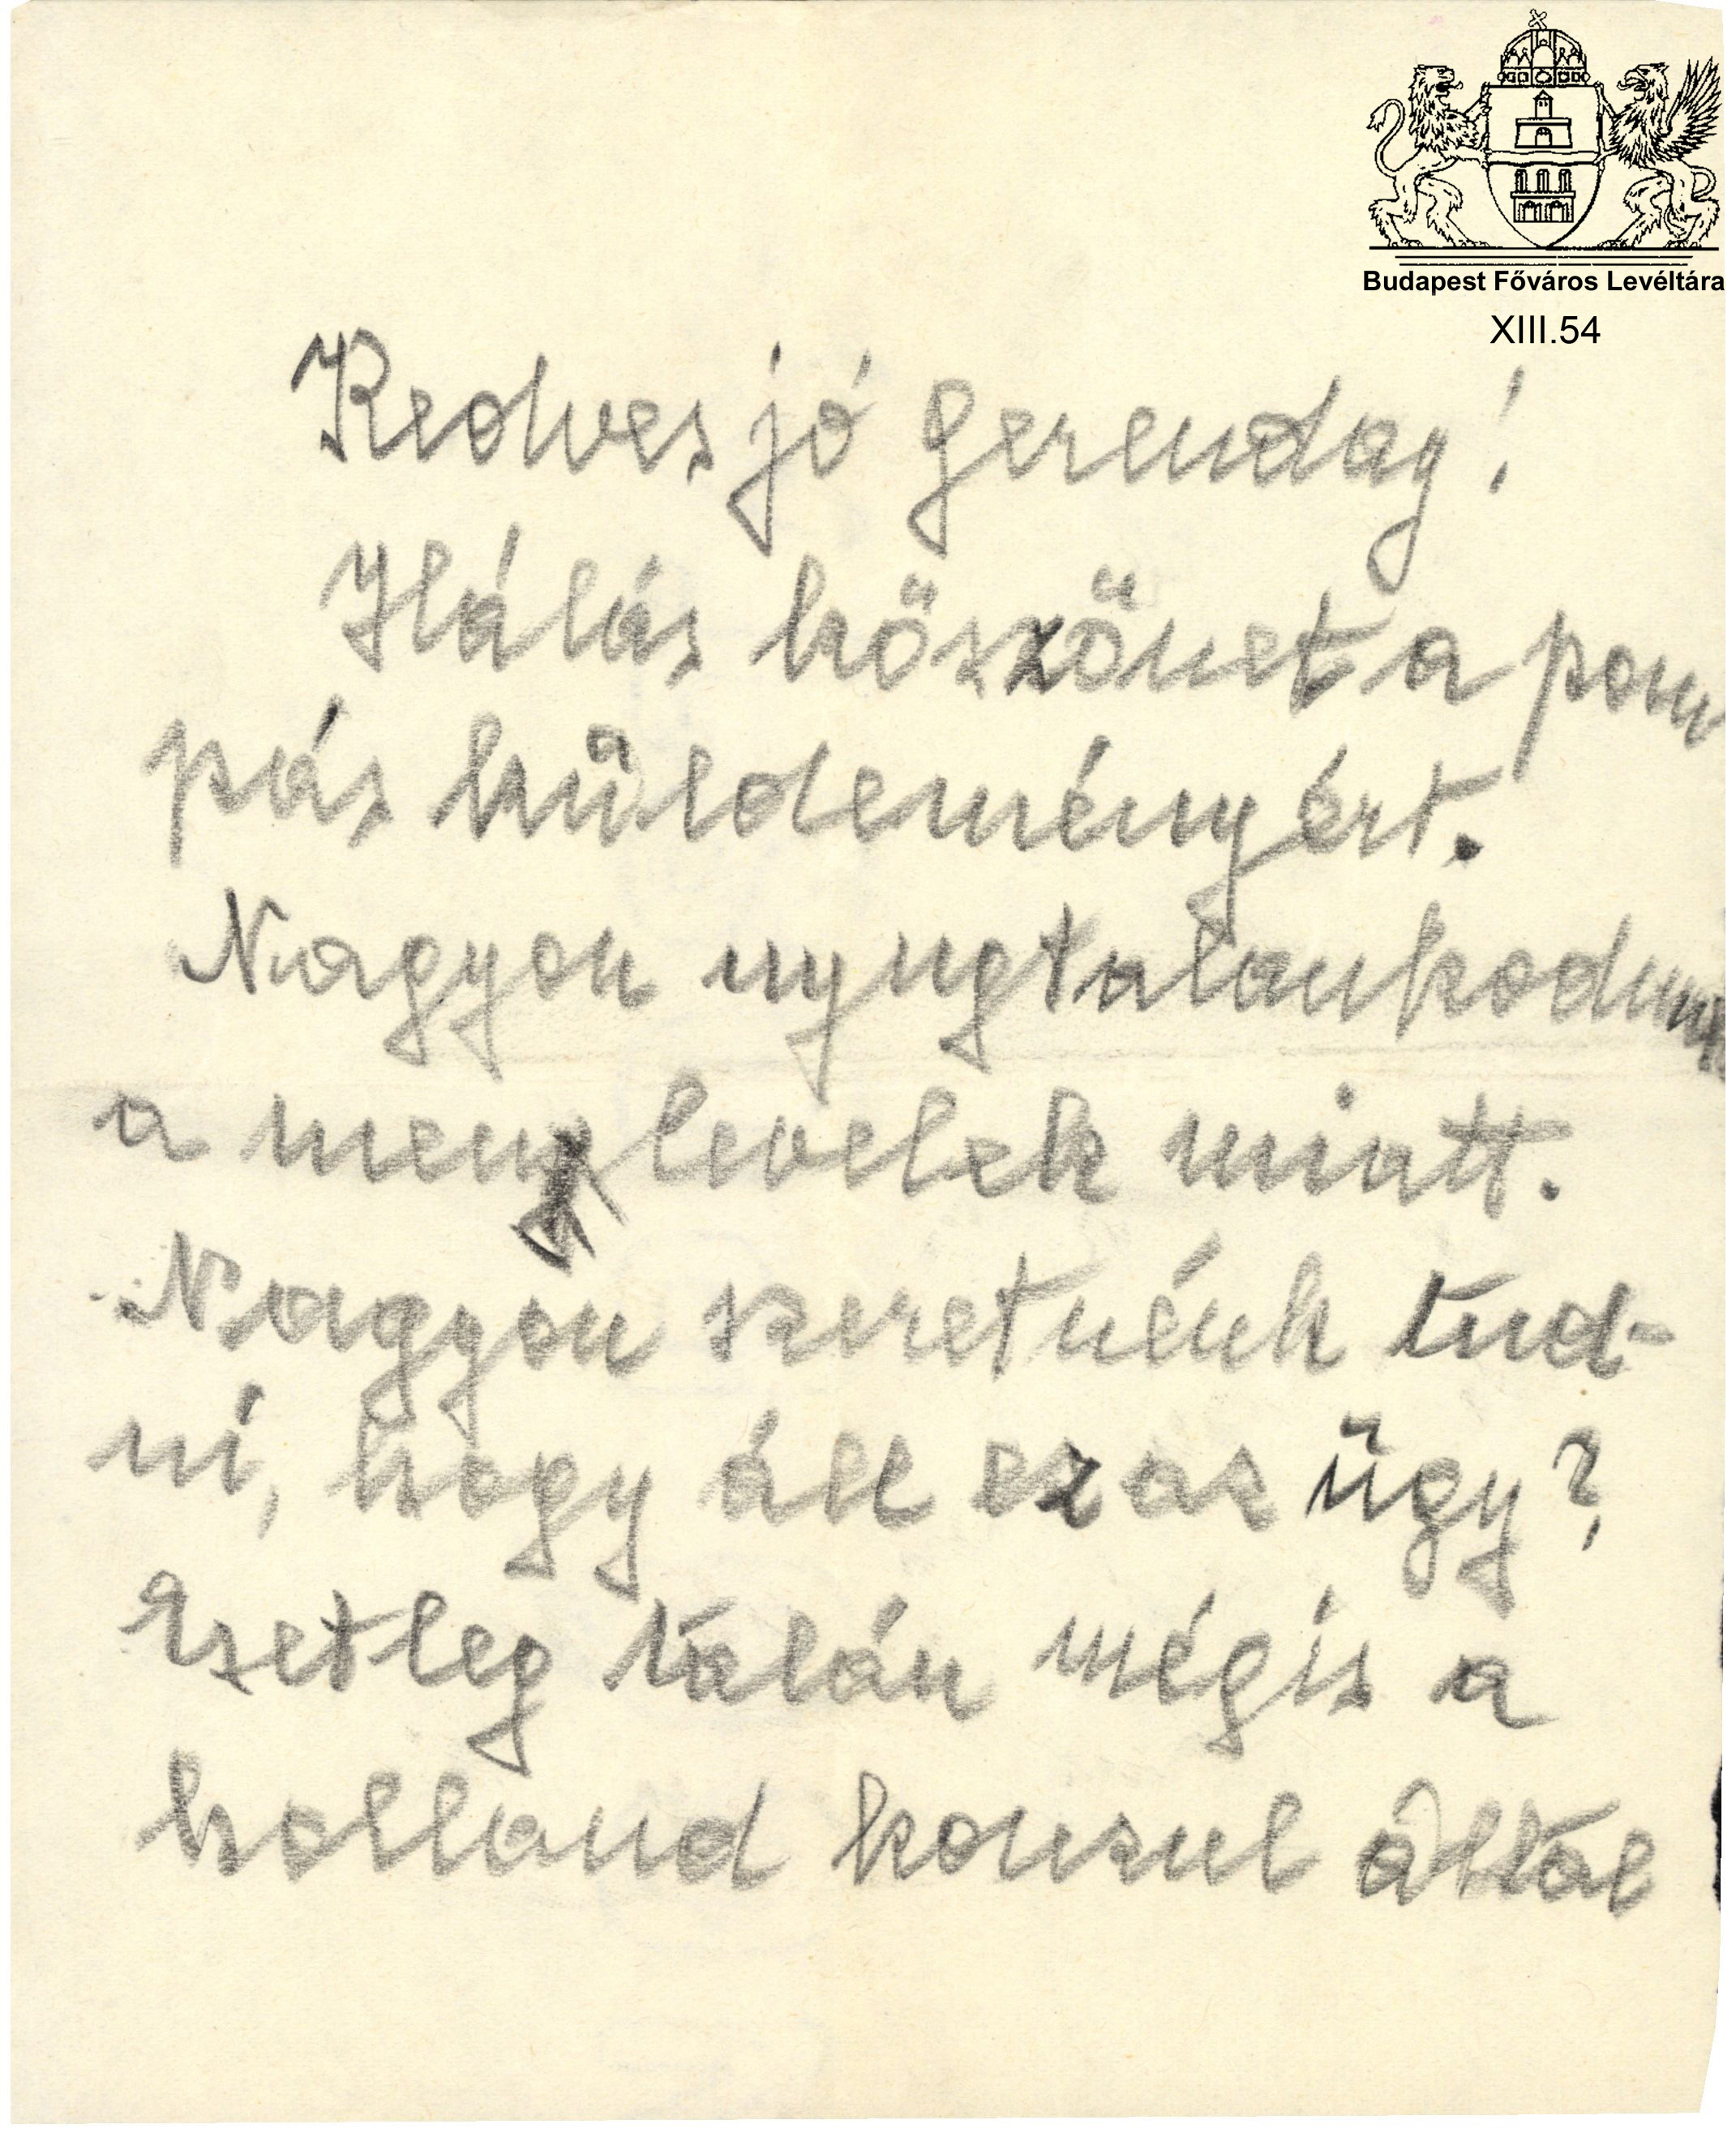 Budapest Főváros Levéltára
XIII.54
Kedves jó Gerenday!
Hálás köszönet a pom
pás küldeményért.
Nagyon nyugtalankodunk
a menlevelek miatt.
Nagyon szeretnénk tud-
ni, hogy áll ez az ügy?
Esetleg talán mégis a
holland konzul által